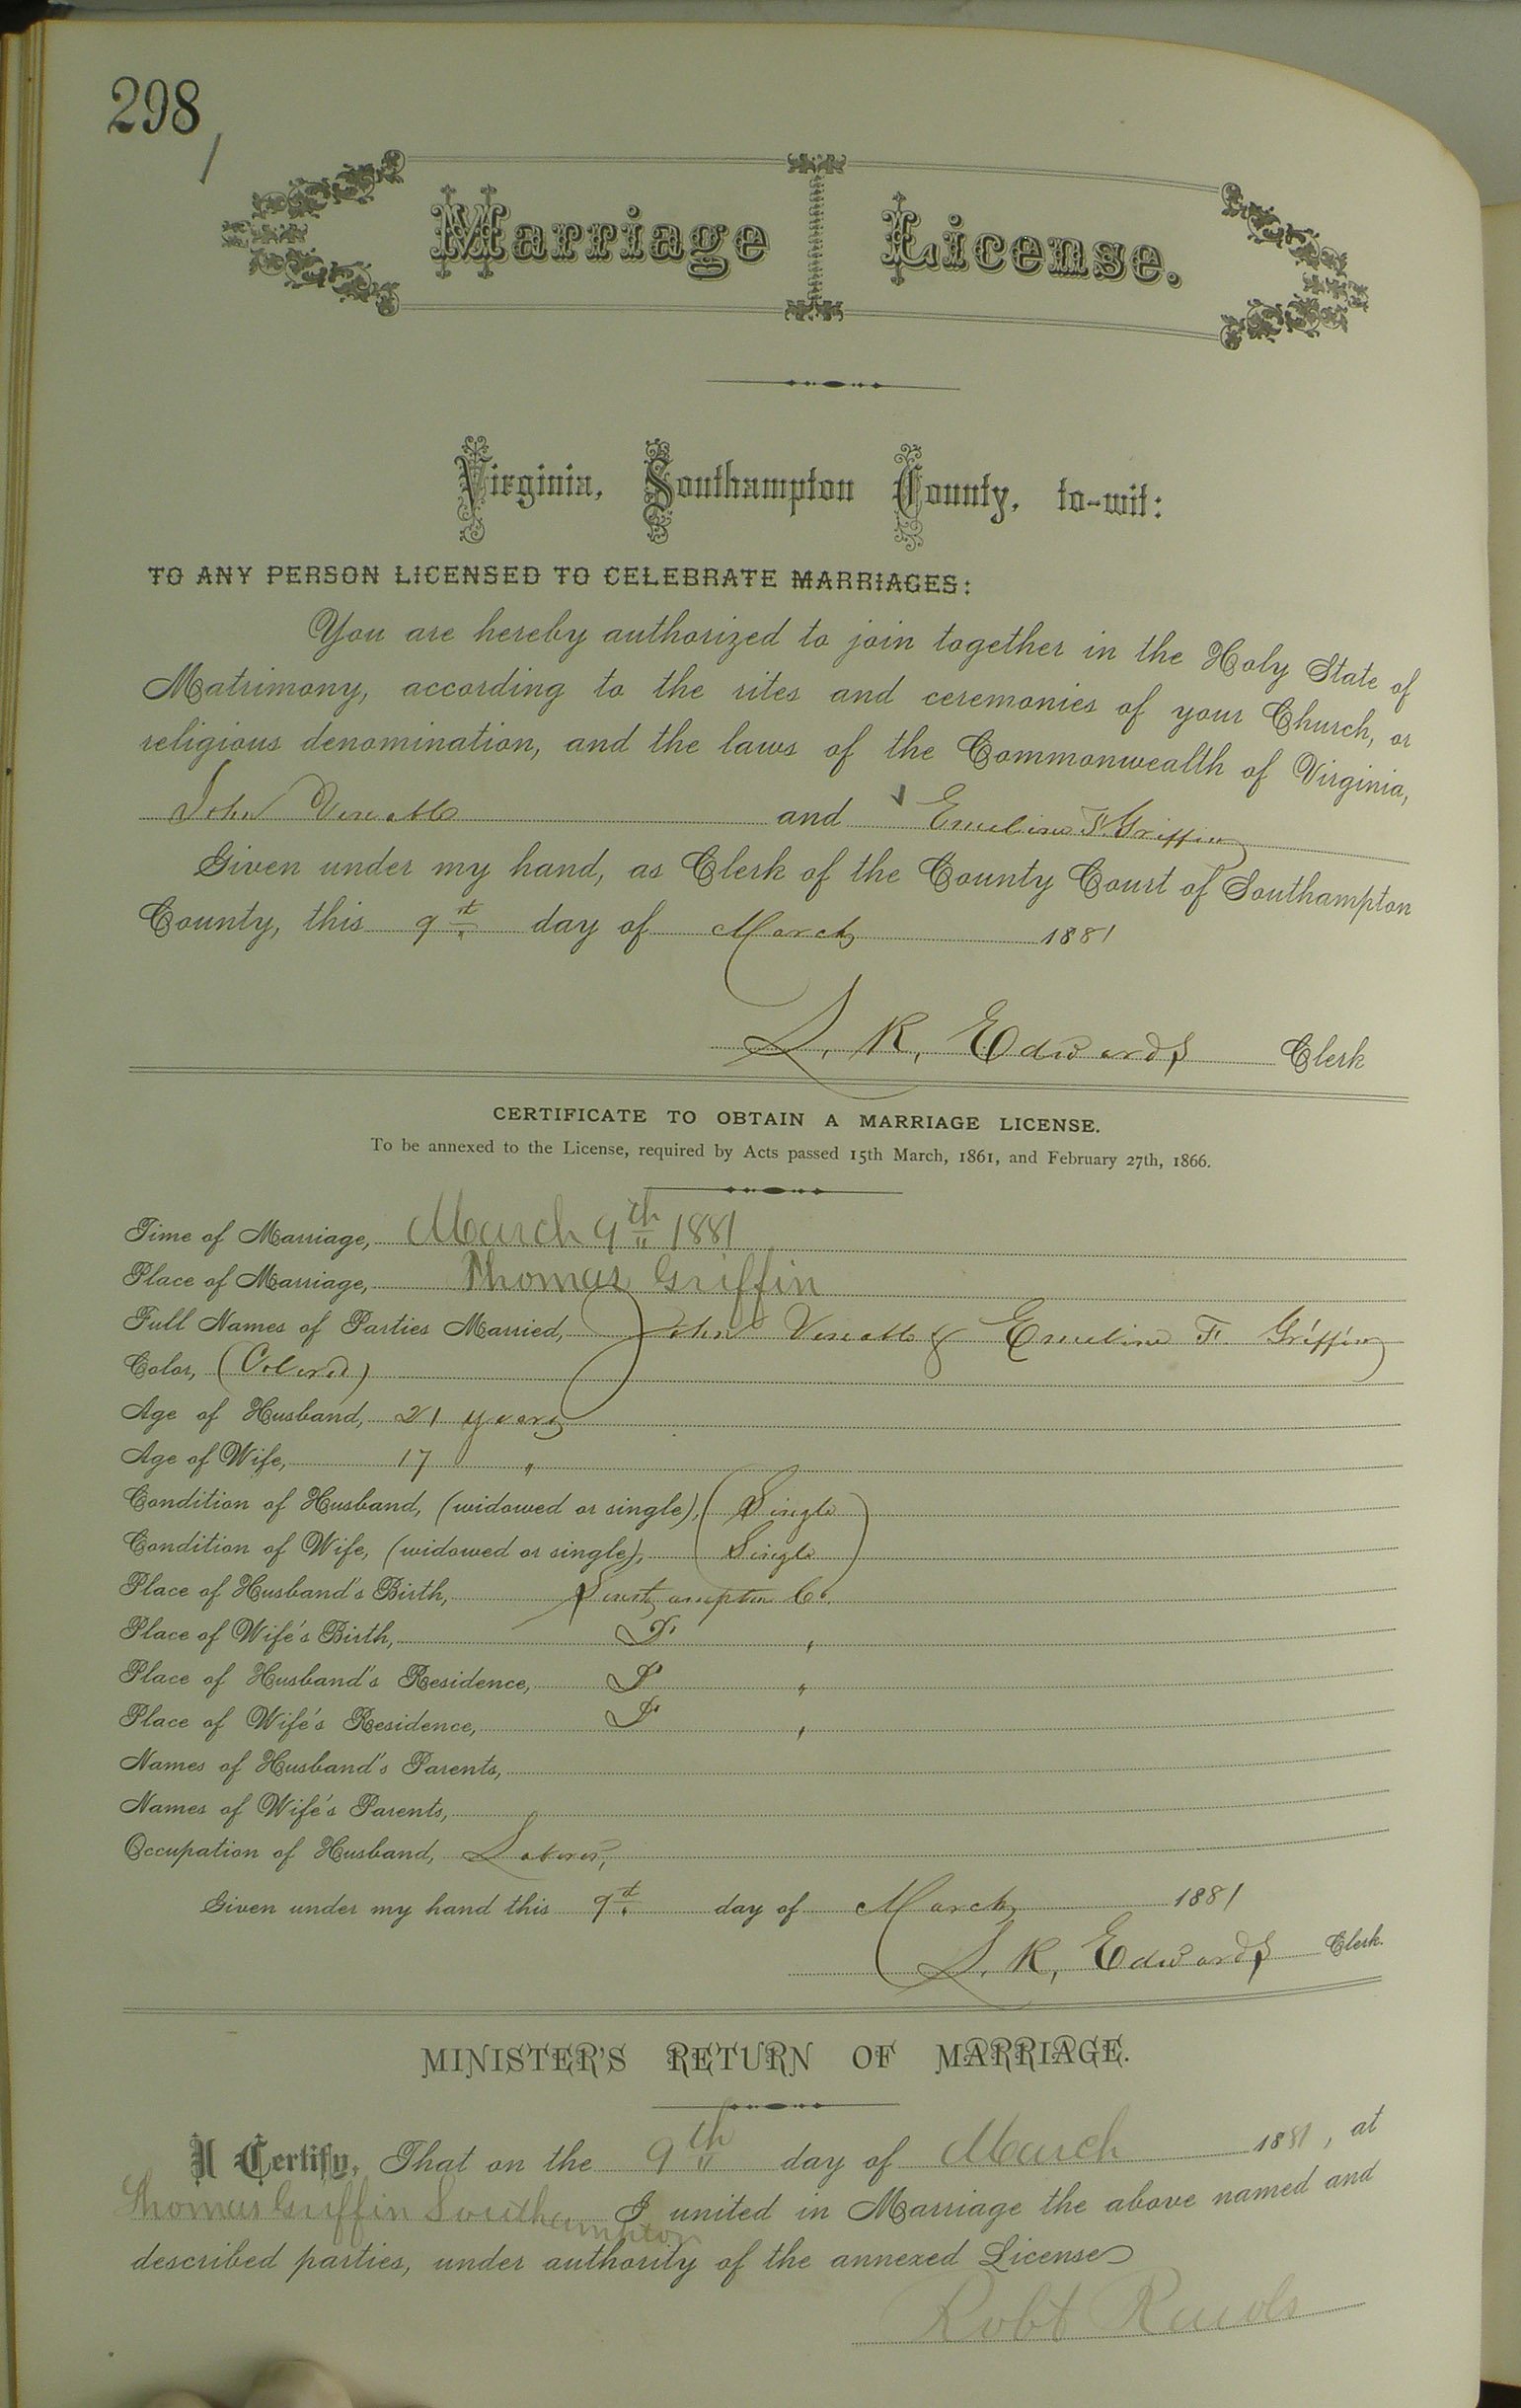 298
Marriage License.
Virginia, Southampton County, to-wit:
TO ANY PERSON LICENSED TO CELEBRATE MARRIAGES:
You are hereby authorized to join together in the Holy State of
Matrimony, according to the rites and ceremonies of your Church, or
religious denomination, and the laws of the Commonwealth of Virginia,
John and Emeline F. Griffin
Given under my hand, as Clerk of the County Court of Southampton
County, this 9th day of March 1881
L. R. Edwards Clerk
CERTIFICATE TO OBTAIN A MARRIAGE LICENSE.
To be annexed to the License, required by Acts passed 15th March, 1861, and February 27th, 1866.
Time of Marriage, March 9th 1881
Place of Marriage, Thomas Griffin
Full Names of Parties Married, John & Emeline F. Griffin
Color, (Colored)
Age of Husband, 21 years
Age of Wife, 17 "
Condition of Husband, (widowed or single), Single
Condition of Wife, (widowed or single), Single
Place of Husband's Birth, Southampton Co.
Place of Wife's Birth, "
Place of Husband's Residence, "
Place of Wife's Residence, "
Names of Husband's Parents,
Names of Wife's Parents,
Occupation of Husband, Laborer,
Given under my hand this 9th day of March 1881
L. R. Edwards Clerk.
MINISTER'S RETURN OF MARRIAGE.
I Certify, That on the 9th day of March 1881, at
Thomas Griffin Southampton I united in Marriage the above named and
described parties, under authority of the annexed License
Robt Rawls